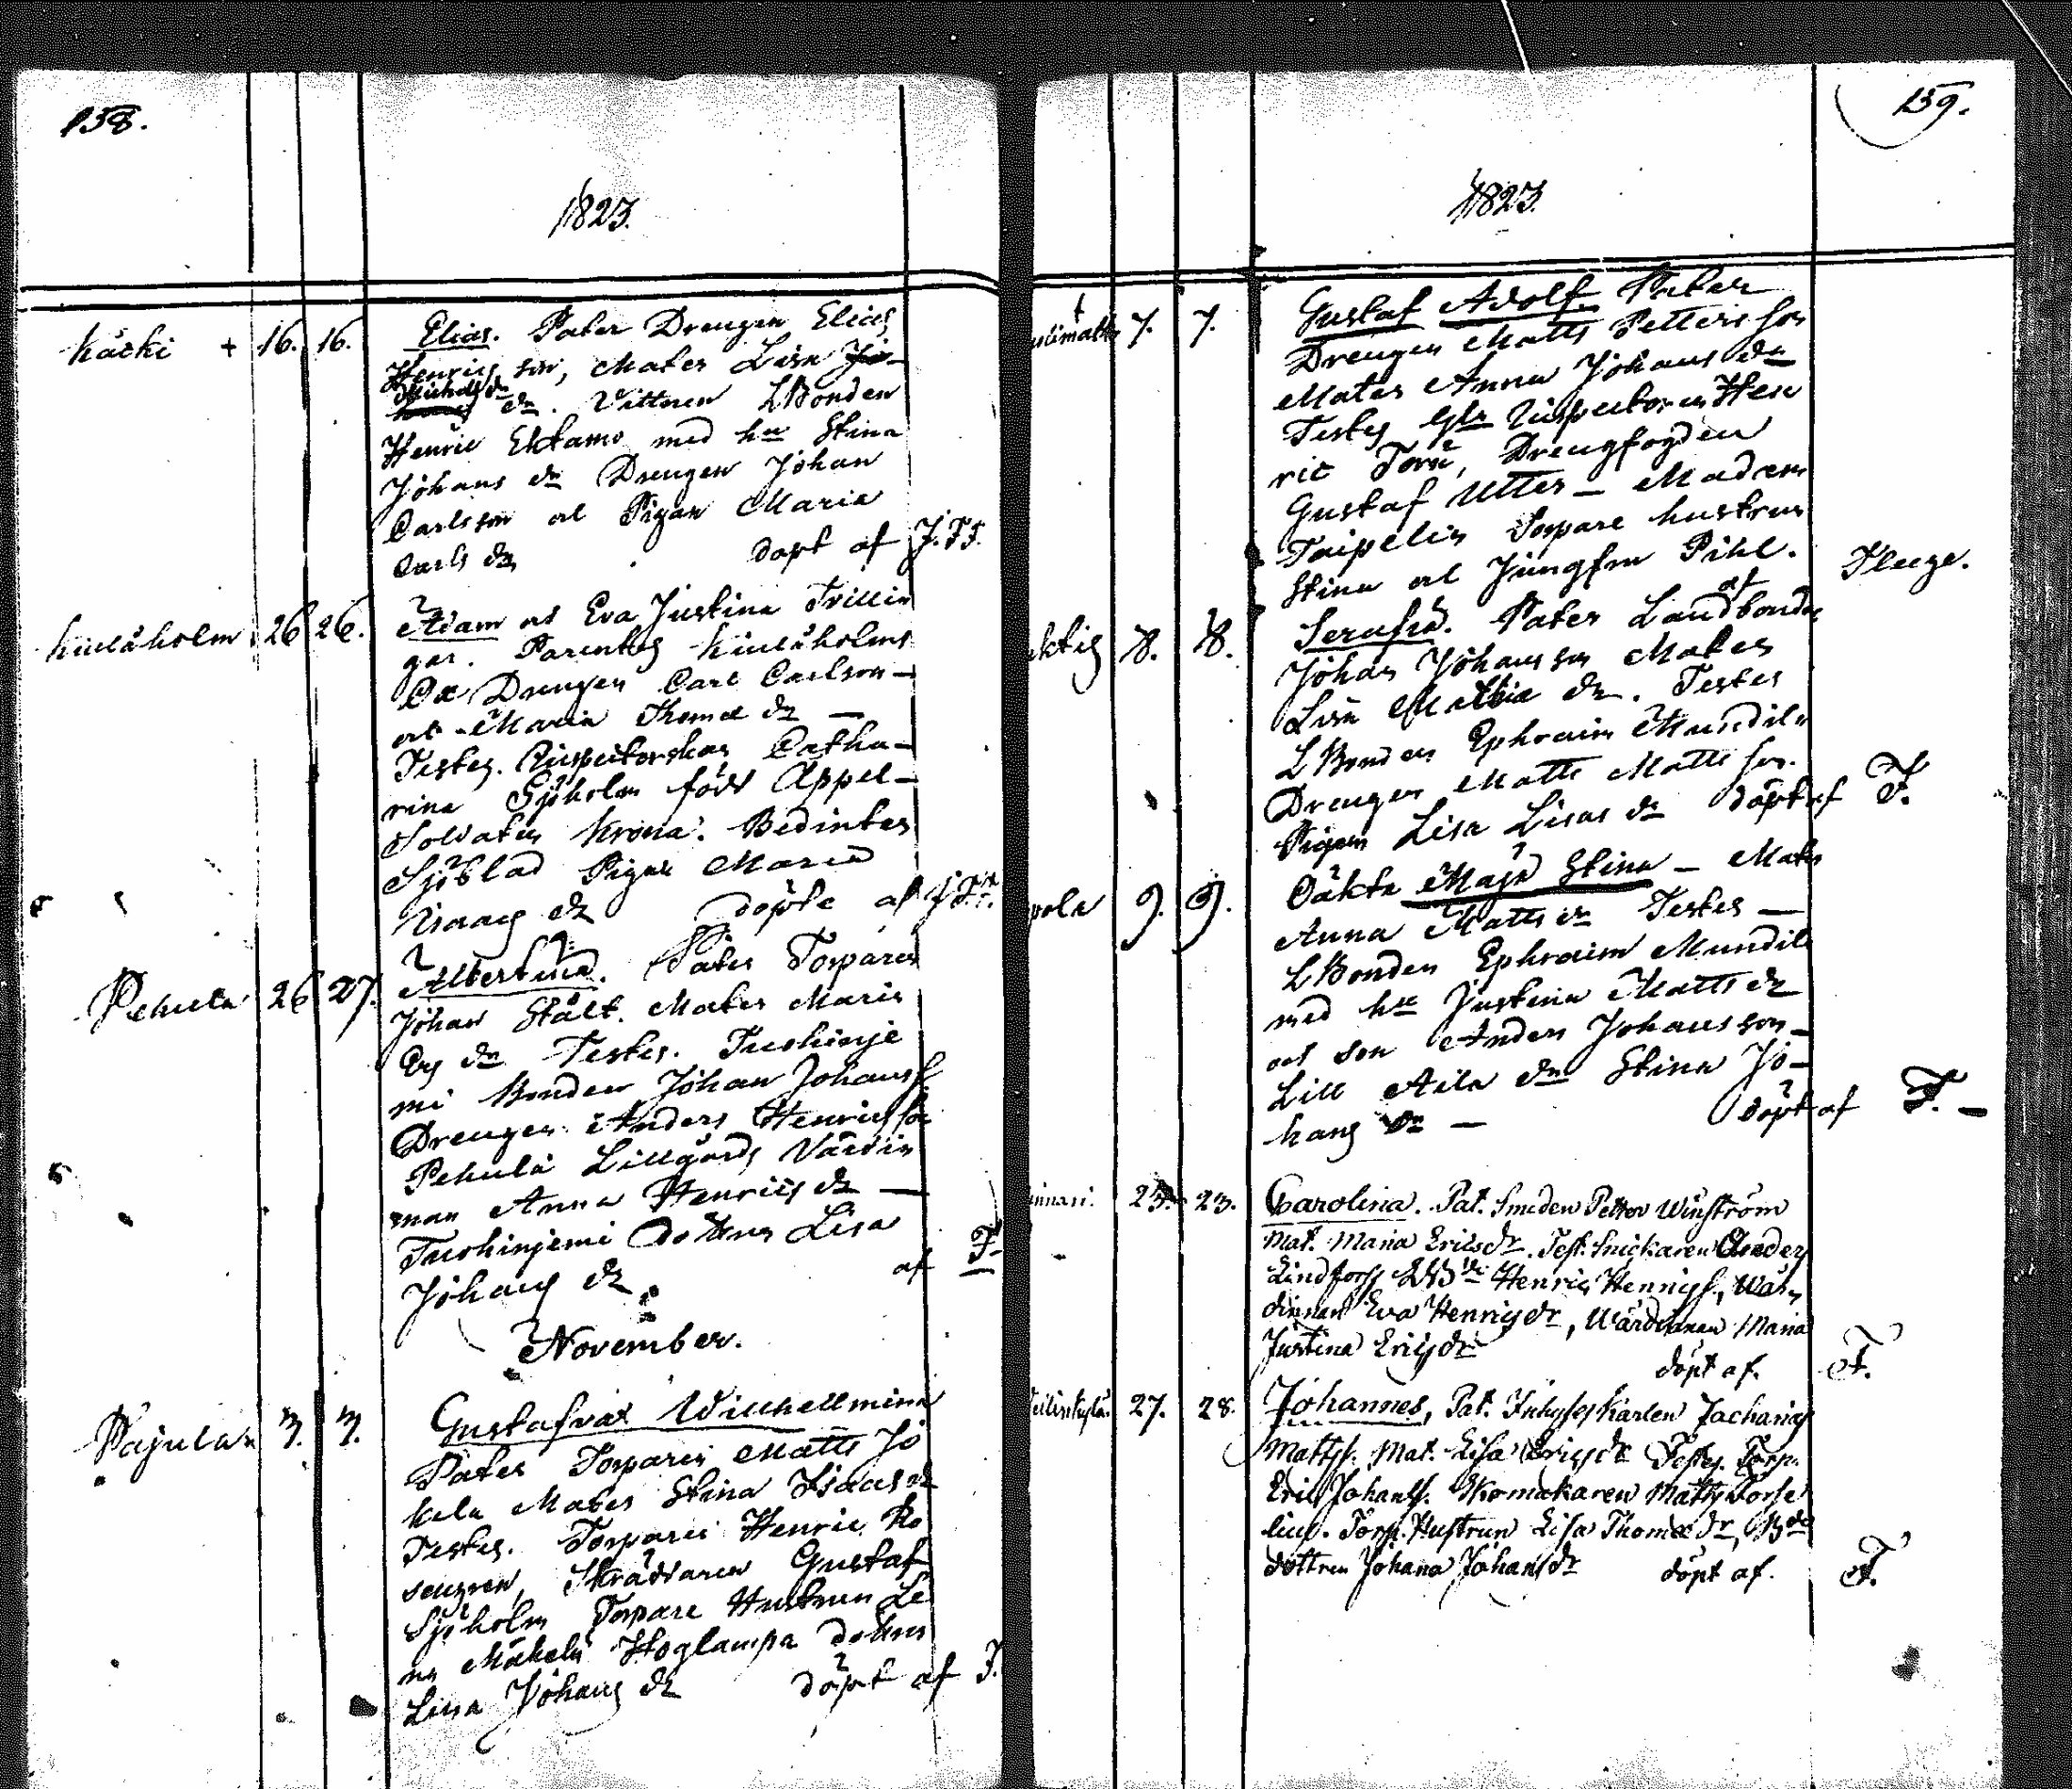 138.
1823.
Häcki + 16. 16. Elias. Pater Drengen Elias
Henrics son, Mater Lisa Jo-
Michels dr
hans dr. Vittnen LBonden
Henric Ektamo med hu Stina
Johans dr Drengen Johan
Carlsson ot Pigan Maria
Carls dr döpt af J. FF.
26 26. Adam ot Eva Justina Trillin
gar. Parentes
Ox Drengen Carl Carlson-
ot Maria Thomæ dr —
Testes. Inspectorskan Catha-
rina Sjöholm född Appel-
Soldaten Krona. Betjenten
Sjöblad Pigan Maria
Isaacs dr döpte af
Pehula 26 27. Albertina. Pater Torparen
Johan Stålt. Mater Maria
Ers dr Testes. Tuohinje
mi Bonden Johan Johanss.
Drengen Anders Henricsson
Pehula Lillgårds Värdin
nan Anna Henrics dr —
Tuohinjemi Dottren Lisa
Johans dr af F.
November.
Pajula 3. 3. Gustafva Willhellmina
Pater Torparen Matts Jo
kela Mater Stina Isaacs dr
Testes. Torparen Henric Ro
sengren, Skräddaren Gustaf
Sjöholm Torpare Hustrun Le
na Mäkelä Hoglampa Dottren
Lisa Johans dr döpt af F.
159.
1823.
7. 7. Gustaf Adolf. Pater
Drengen Matts Petters son
Mater Anna Johans dr
Testes Inspectoren Hen
ric Drengfogden
Gustaf Utter — Madam
Taipelin Torpare hustrun
Stina ot Jungfru Pihl. af
8. 8. Serafia. Pater Landbonden
Johan Johansson Mater
Lisa Mathiæ dr. Testes
LBonden Ephraim Mundila
Drengen Matts Matts son.
Pigan Lisa Lisas dr döpt af F.
9. 9. Oäkta Maja Stina — Mater
Anna Matts dr Testes —
LBonden Ephraim Mundila
med hu Justina Matts dr
ot son Anders Johansson-
Lill dn Stina Jo-
hans dr — döpt af F. —
23. 23. Carolina. Pat. Smeden Petter Winström
Mat. Maria Ericsdr. Test. Snickaren Anders
Lindfors LBdn Henric Henrics., Wär-
dinnan Eva Henricsdr, Wärdinnan Maria
Justina Ericsdr döpt af. F.
27. 28. Johannes, Pat. Inhyseskarlen Zacharias
Mattss. Mat. Lisa Ericsdr Testes. Torp.
Eric Johanss. Skomakaren Matts Forse
lius. Torp. Hustrun Lisa Thomædr, Bde
dottren Johana Johansdr döpt af. F.